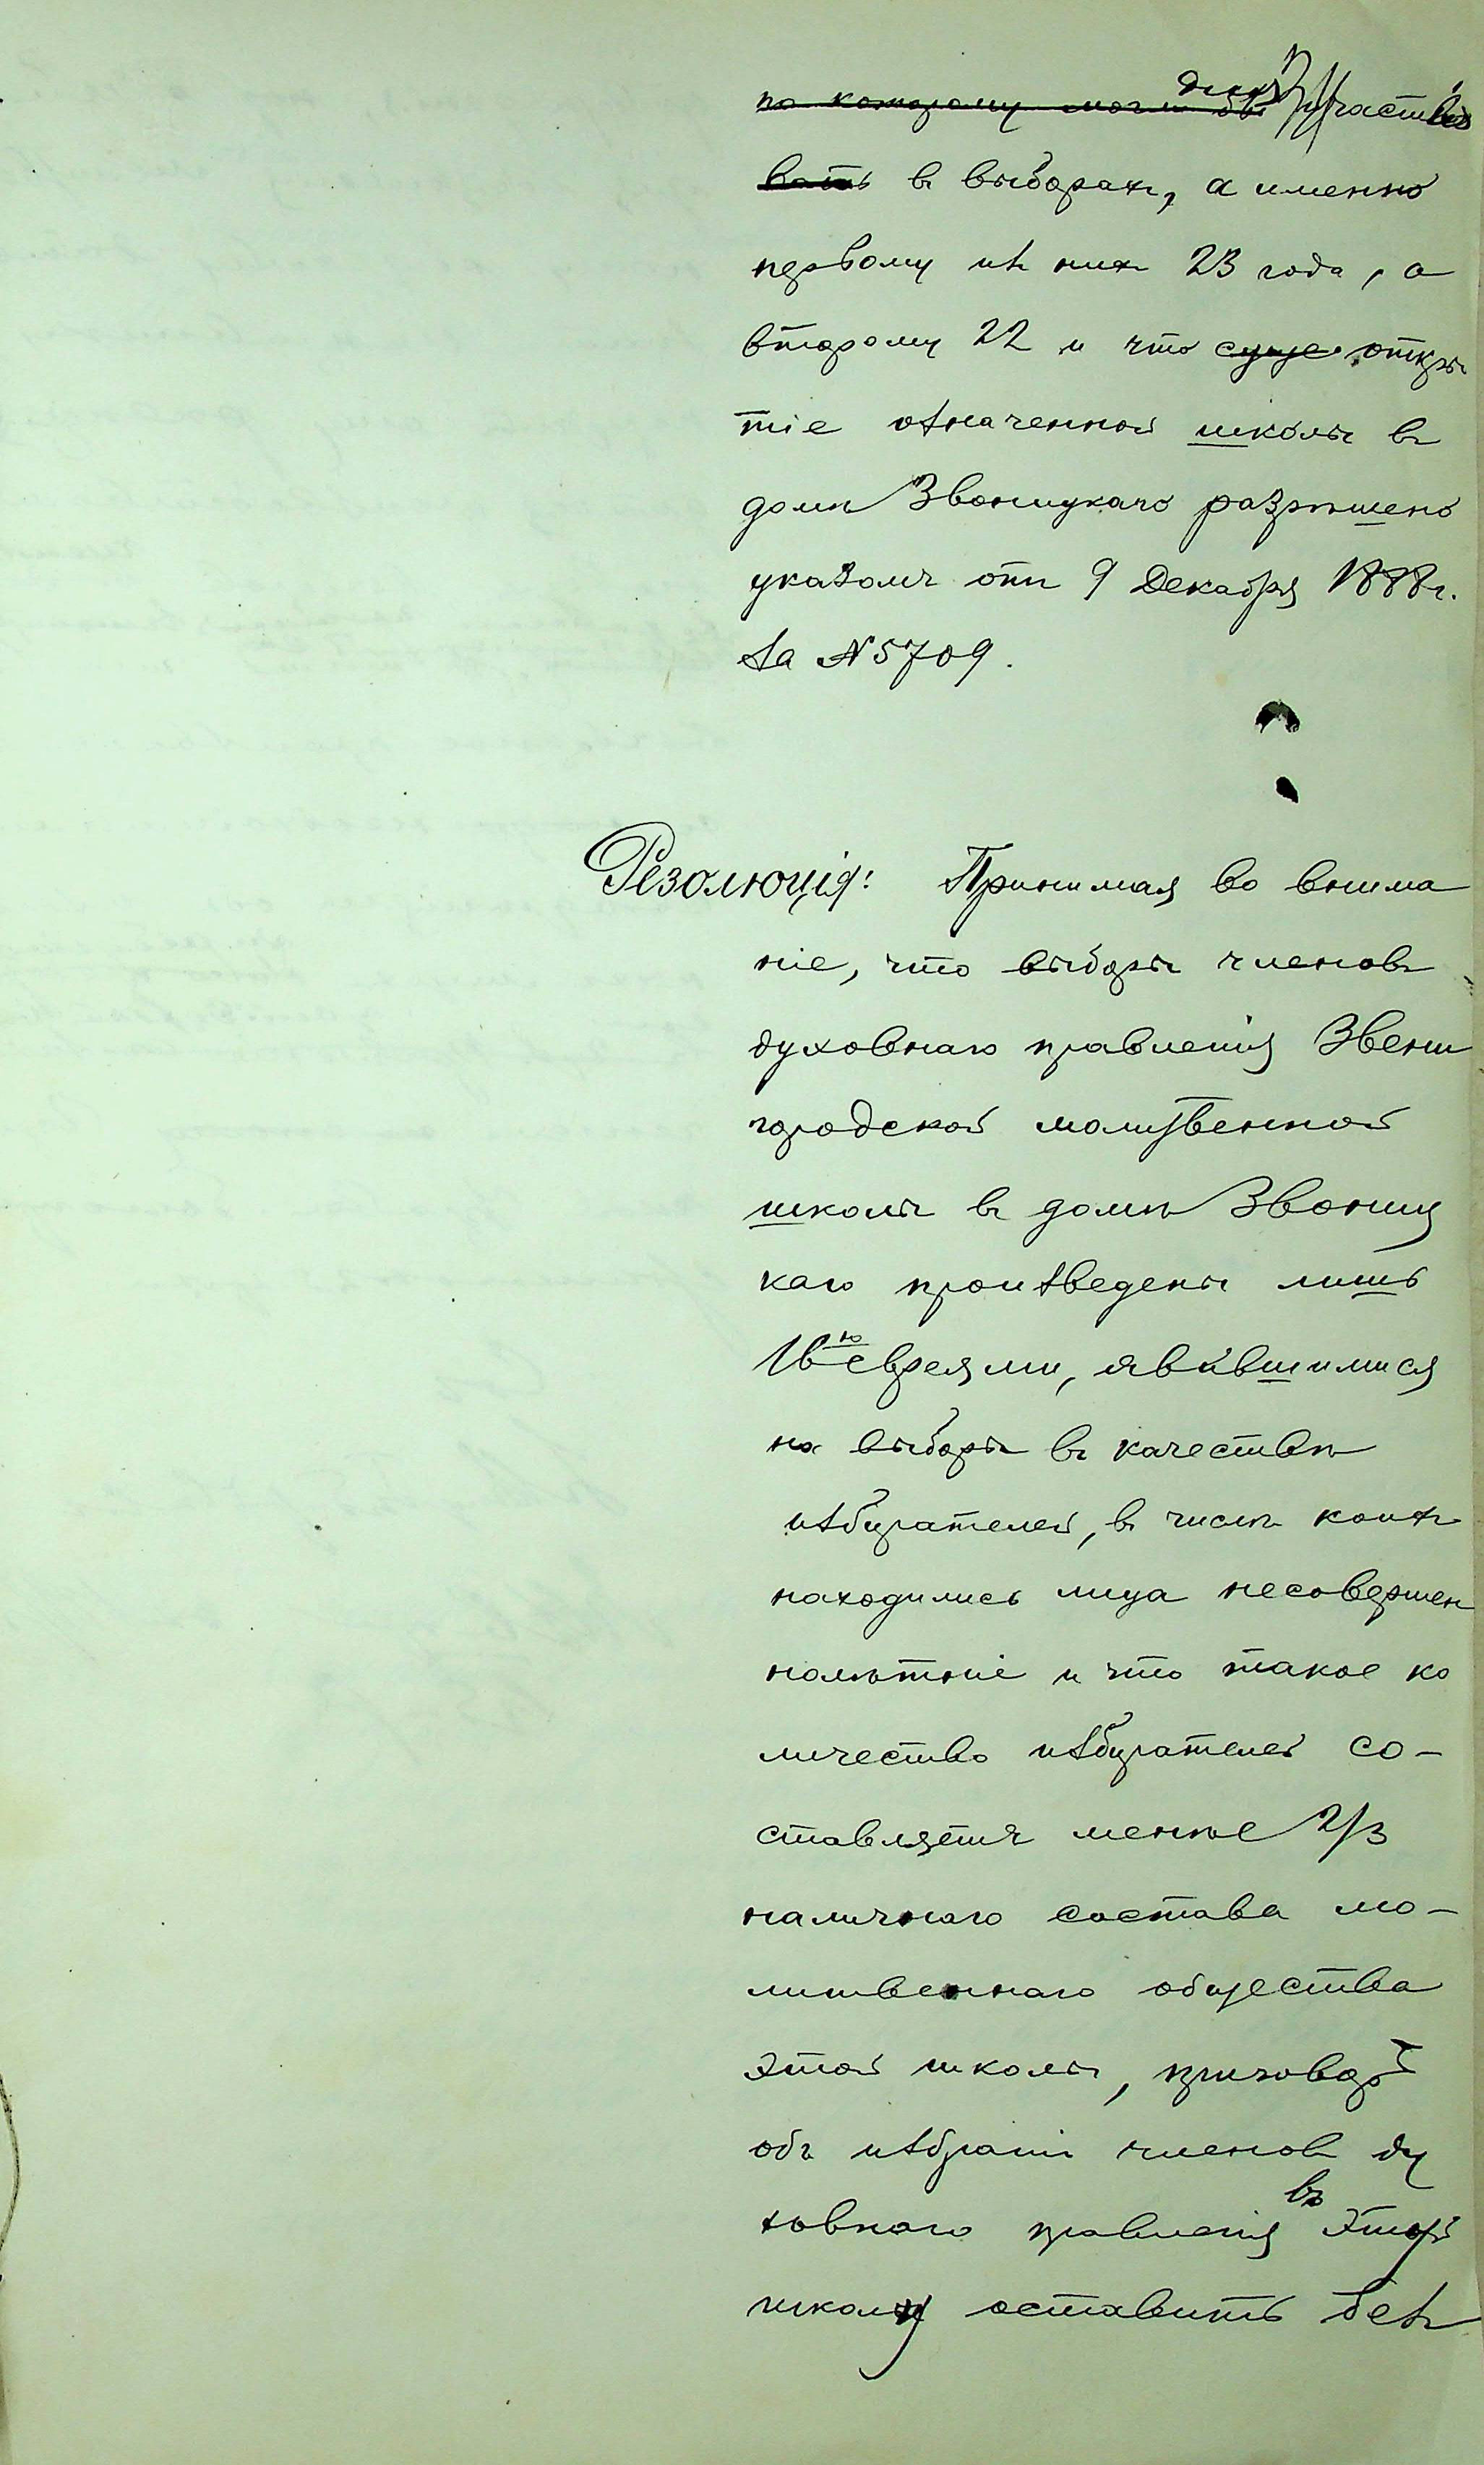 по которому могли бы для участія
вать въ выборахъ, а именно
первому изъ нихъ 23 года, а
второму 22 и что суще откры
тіе означенной школы въ
домѣ Звоницкаго разрѣшено
указомъ отъ 9 Декабря 1888 г.
за № 5709.
Резолюція: Принимая во внима
ніе, что выборы членовъ
духовнаго правленія Звени
городской молитвенной
школы въ домѣ Звониц
каго произведены лишь
16ю евреями, явившимися
на выборы въ качествѣ
избирателей, въ числѣ коихъ
находились лица несовершен
нолѣтніе и что такое ко
личество избирателей со-
ставляетъ менѣе 2/3
наличнаго состава мо-
литвеннаго общества
этой школы, приговоръ
объ избраніи членовъ ду
ховнаго правленія въ эту
школу оставить безъ